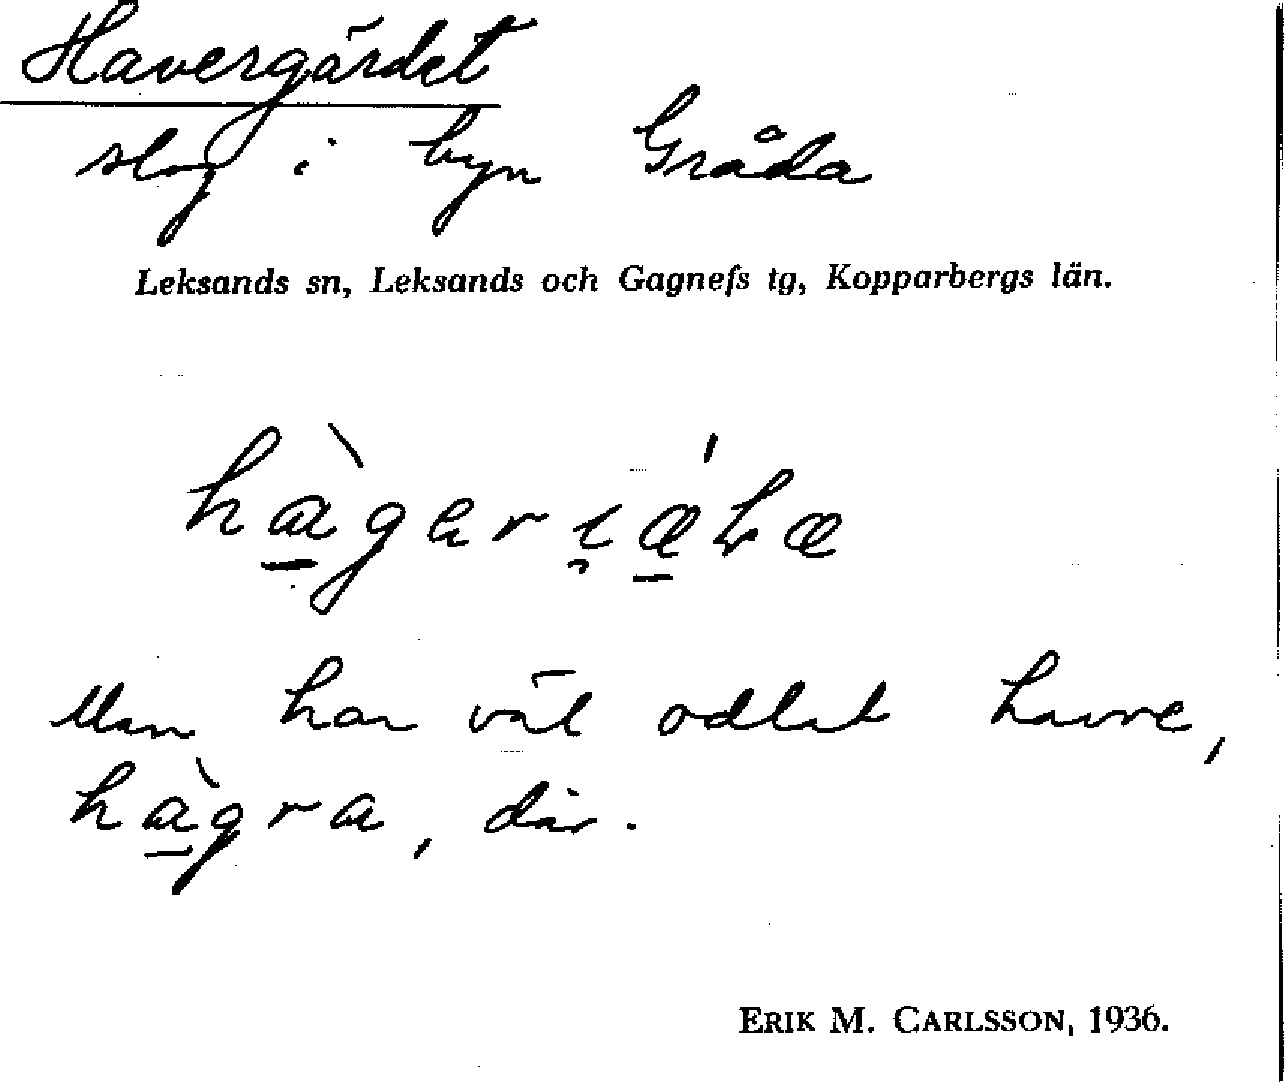 Havergärdet
slog i byn Gråda
Leksands sn, Leksands och Gagnefs tg, Kopparbergs län.
Man har väl odlat havre,
hàgra, där.
ERIK M. CARLSSON, 1936.